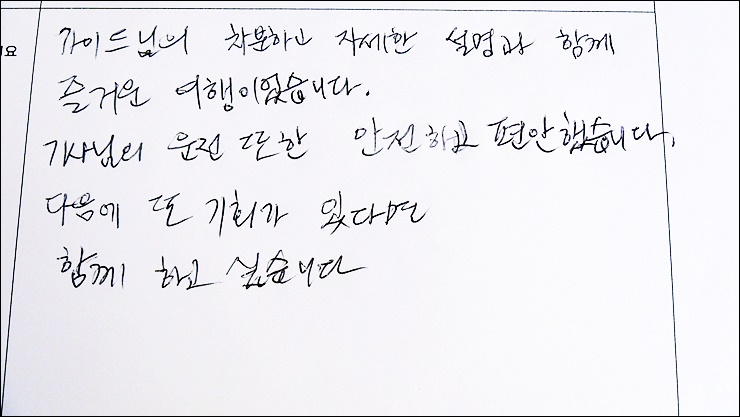 가이드님의 차분하고 자세한 설명과 함께
즐거운 여행이었습니다.
기사님의 운전 또한 안전하고 편안했습니다.
다음에 또 기회가 있다면
함께 하고 싶습니다
요